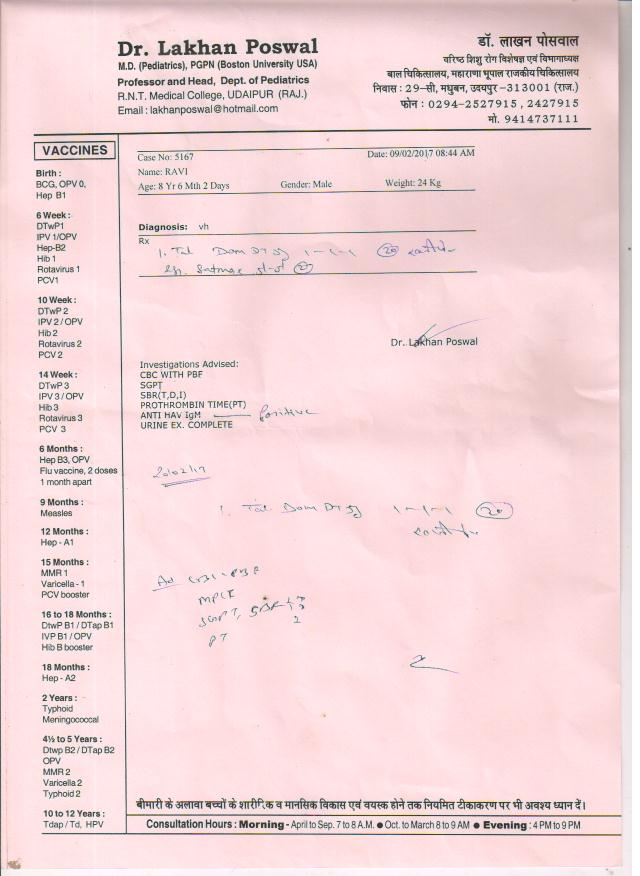 Dr. Lakhan Poswal
M.D. (Pediatrics), PGPN (Boston University USA)
Professor and Head, Dept. of Pediatrics
R.N.T. Medical College, UDAIPUR (RAJ.)
Email : lakhanposwal@hotmail.com
डॉ. लाखन पोसवाल
वरिष्ठ शिशु रोग विशेषज्ञ एवं विभागाध्यक्ष
बाल चिकित्सालय, महाराणा भूपाल राजकीय चिकित्सालय
निवास : 29-सी, मधुबन, उदयपुर-313001 (राज.)
फोन : 0294-2527915, 2427915
मो. 9414737111
VACCINES
Birth :
BCG, OPV 0,
Hep B1
6 Week :
DTwP1
IPV 1/OPV
Hep-B2
Hib 1
Rotavirus 1
PCV1
10 Week :
DTwP 2
IPV 2 / OPV
Hib 2
Rotavirus 2
PCV 2
14 Week :
DTwP 3
IPV 3 / OPV
Hib 3
Rotavirus 3
PCV 3
6 Months :
Hep B3, OPV
Flu vaccine, 2 doses
1 month apart
9 Months :
Measles
12 Months :
Hep - A1
15 Months :
MMR 1
Varicella - 1
PCV booster
16 to 18 Months :
DtwP B1 / DTap B1
IVP B1 / OPV
Hib B booster
18 Months :
Hep - A2
2 Years :
Typhoid
Meningococcal
4½ to 5 Years :
Dtwp B2 / DTap B2
OPV
MMR 2
Varicella 2
Typhoid 2
10 to 12 Years :
Tdap / Td, HPV
Case No: 5167 Date: 09/02/2017 08:44 AM
Name: RAVI
Age: 8 Yr 6 Mth 2 Days Gender: Male Weight: 24 Kg
Diagnosis: vh
Rx
1. Tab Dom DT 5g 1-1-1 20
Dr. Lakhan Poswal
Investigations Advised:
CBC WITH PBF
SGPT
SBR(T,D,I)
PROTHROMBIN TIME(PT)
ANTI HAV IgM — Positive
URINE EX. COMPLETE
20/02/17
1. Tab Dom DT 5g 1-1-1 20
Ad CBC-PBF
SGPT, SBR
PT
बीमारी के अलावा बच्चों के शारीरिक व मानसिक विकास एवं वयस्क होने तक नियमित टीकाकरण पर भी अवश्य ध्यान दें।
Consultation Hours : Morning - April to Sep. 7 to 8 A.M. ● Oct. to March 8 to 9 AM ● Evening : 4 PM to 9 PM